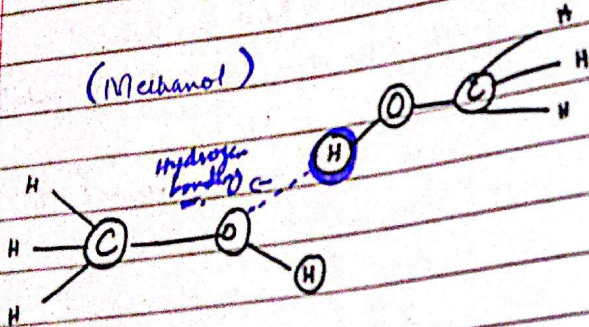 (Methanol)
H
H
H
C
O
H
Hydrogen
bonding
O
C
H
H
H
H